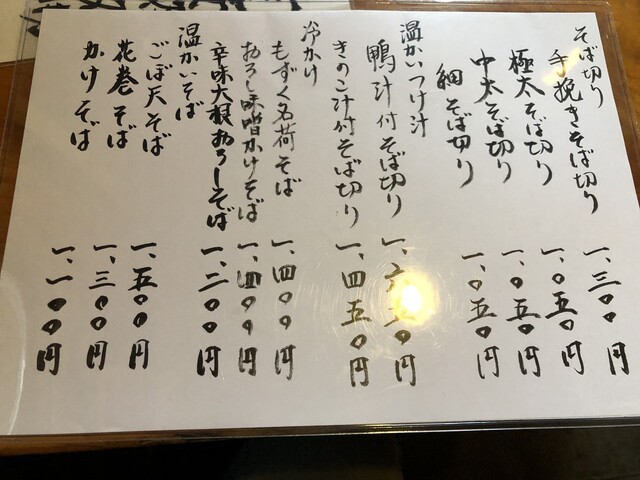 そば切り
手挽きそば切り 一、三〇〇円
極太そば切り 一、〇五〇円
中太そば切り 一、〇五〇円
細そば切り 一、〇五〇円
温かいつけ汁
鴨汁付そば切り 一、六五〇円
きのこ汁付そば切り 一、四五〇円
冷かけ
もずく名荷そば 一、四〇〇円
おろし味噌かけそば 一、四〇〇円
辛味大根おろしそば 一、二〇〇円
温かいそば
ごぼ天そば 一、五〇〇円
花巻そば 一、三〇〇円
かけそば 一、一〇〇円